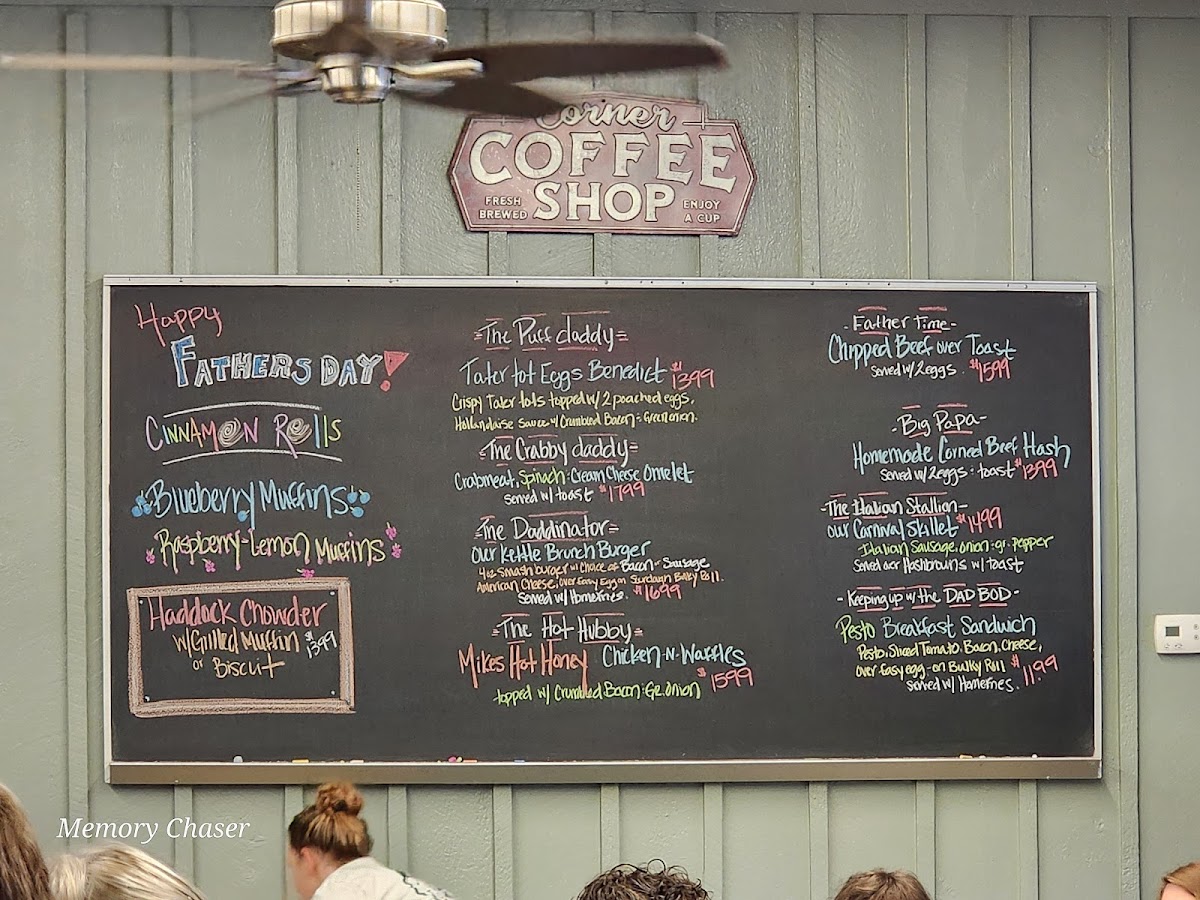 Corner
COFFEE
SHOP
FRESH
BREWED
ENJOY
A CUP
Happy
FATHERS DAY!
CINNAMON ROllS
Blueberry Muffins
Raspberry-Lemon Muffins
Haddock Chowder
w/Grilled Muffin $1399
or Biscuit
=The Puff daddy=
Tater tot Eggs Benedict $1399
Crispy Tater tots topped w/ 2 poached eggs,
Hollandaise sauce w/ Crumbled Bacon : Green onion.
=The Crabby daddy=
Crabmeat, Spinach : Cream Cheese Omelet
Served w/ toast $1799
=The Daddinator=
Our Kettle Brunch Burger
4oz Smash burger w/ Choice of Bacon or Sausage
American Cheese, over Easy Egg on Sundayn Bulky Roll.
Served w/ Homefries. $1699
=The Hot Hubby=
Mikes Hot Honey Chicken-N-Waffles
topped w/ Crumbled Bacon : Gr. Onion $1599
-Father Time-
Chipped Beef over Toast
Served w/ 2 eggs. $1599
-Big Papa-
Homemade Corned Beef Hash
Served w/ 2 eggs : toast $1399
-The Italian Stallion-
Our Carnival Skillet $1499
Italian Sausage, onion : gr. pepper
Served over Hashbrowns w/ toast
- Keeping up w/ the DAD BOD -
Pesto Breakfast Sandwich
Pesto, Sliced Tomato, Bacon, Cheese,
over easy egg - on Bulky Roll $11.99
Served w/ Homefries.
Memory Chaser